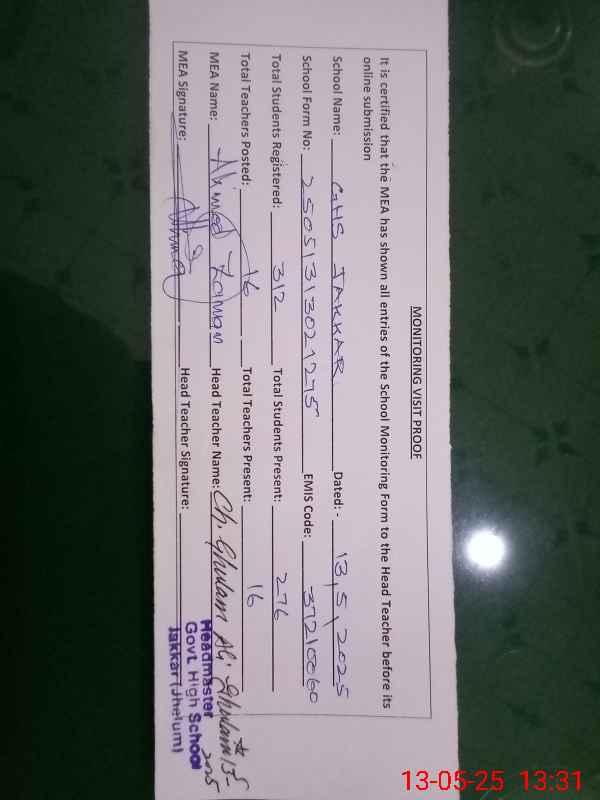 MONITORING VISIT PROOF
It is certified that the MEA has shown all entries of the School Monitoring Form to the Head Teacher before its
online submission
School Name: GHS JAKKAR Dated: - 13,5,2025
School Form No: 25051313021275 EMIS Code: 37210060
Total Students Registered: 312 Total Students Present: 276
Total Teachers Posted: 16 Total Teachers Present: 16
MEA Name: Ahmed Zaman Head Teacher Name: Ch. Ghulam Ali
MEA Signature: Head Teacher Signature:
Headmaster
Govt. High School
Jakkar (Jhelum)
2025
13-05-25 13:31